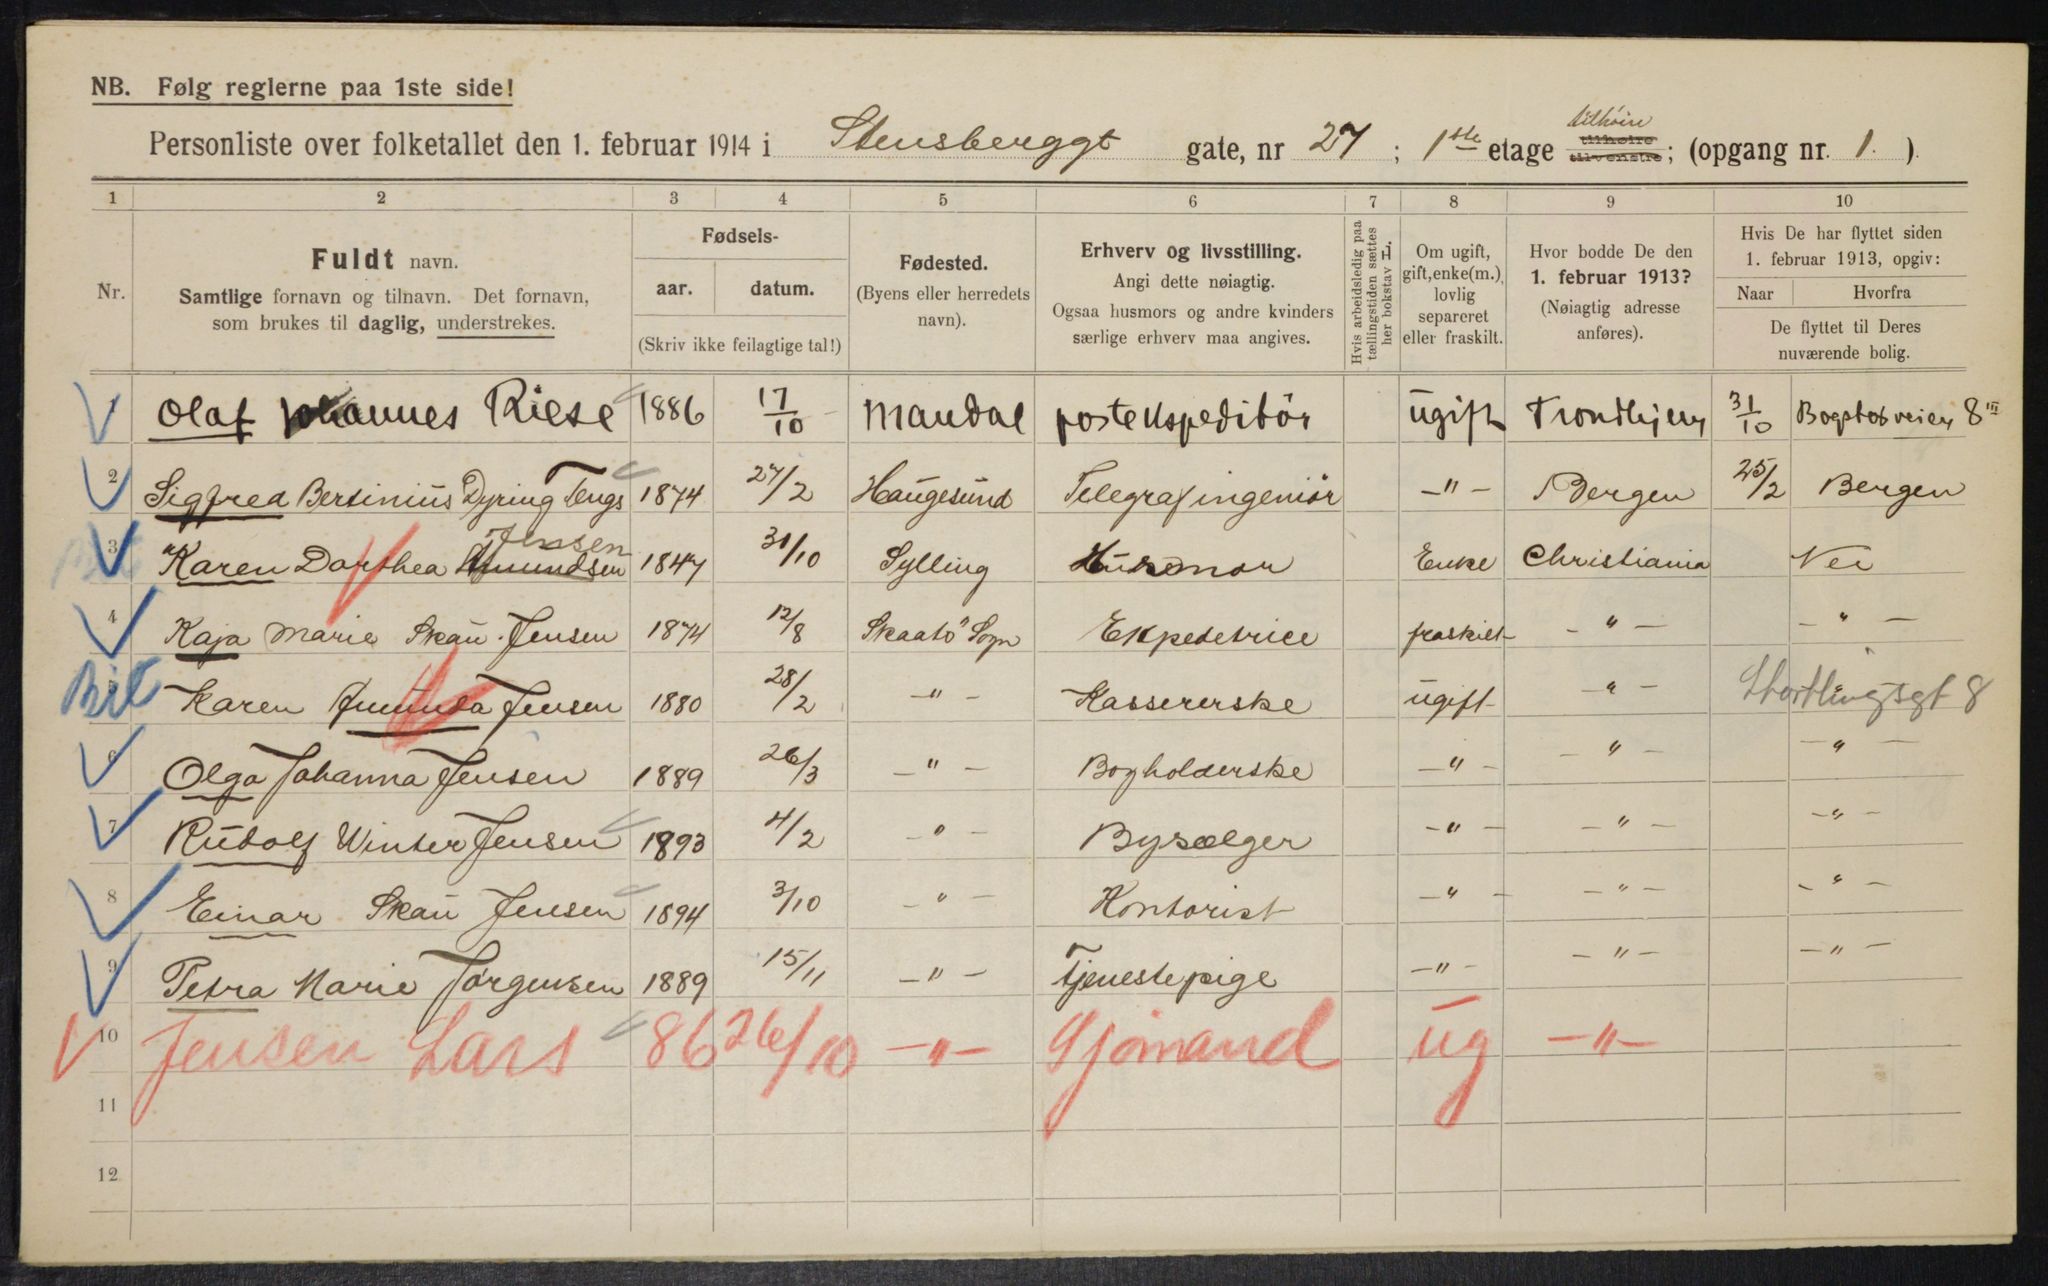 NB. Følg reglerne paa 1ste side!
tilhøire
Personliste over folketallet den 1. februar 1914 i Stensberggt gate, nr 27 ; 1ste etage tilhøire tilvenstre; (opgang nr. 1. )
1 2 3 4 5 6 7 8 9 10
Nr.
Fuldt navn.
Samtlige fornavn og tilnavn. Det fornavn,
som brukes til daglig, understrekes.
Fødsels-
aar. datum.
(Skriv ikke feilagtige tal!)
Fødested.
(Byens eller herredets
navn).
Erhverv og livsstilling.
Angi dette nøiagtig.
Ogsaa husmors og andre kvinders
særlige erhverv maa angives.
Hvis arbeidsledig paa
tællingstiden sættes
her bokstav L.
Om ugift,
gift, enke(m.),
lovlig
separeret
eller fraskilt.
Hvor bodde De den
1. februar 1913?
(Nøiagtig adresse
anføres).
Hvis De har flyttet siden
1. februar 1913, opgiv:
Naar Hvorfra
De flyttet til Deres
nuværende bolig.
1 Olaf Johannes Riese 1886 17/10 Mandal postekspeditør ugift Trondhjem 31/10 Bogstadveien 8 III
2 Sigfred Bertinius Dyring Tengs 1874 27/2 Haugesund Telegrafingeniør -"- Bergen 25/2 Bergen
Jensen
3 Karen Dorthea Amundsen 1847 31/10 Sylling Husmor Enke Christiania Nei
4 Kaja Marie Skau Jensen 1874 12/8 Skaatø Sogn Ekpedetrice fraskilt -"- -"-
Bit 5 Karen Amunda Jensen 1880 28/2 -"- Kassererske ugift -"- Stortlingsgt 8
6 Olga Johanna Jensen 1889 26/3 -"- Bogholderske -"- -"- -"-
7 Rudolf Winter Jensen 1893 4/2 -"- Bysælger -"- -"- -"-
8 Einar Skau Jensen 1894 3/10 -"- Kontorist -"- -"- -"-
9 Petra Marie Jørgensen 1889 15/11 -"- Tjenestepige -"- -"- -"-
10 Jensen Lars 86 26/10 -"- Sjømand ug -"-
11
12